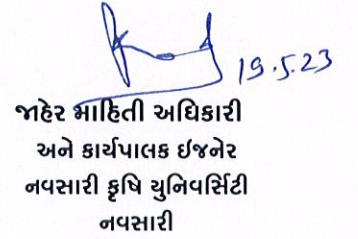 19.5.23
જાહેર માહિતી અધિકારી
અને કાર્યપાલક ઇજનેર
નવસારી કૃષિ યુનિવર્સિટી
નવસારી